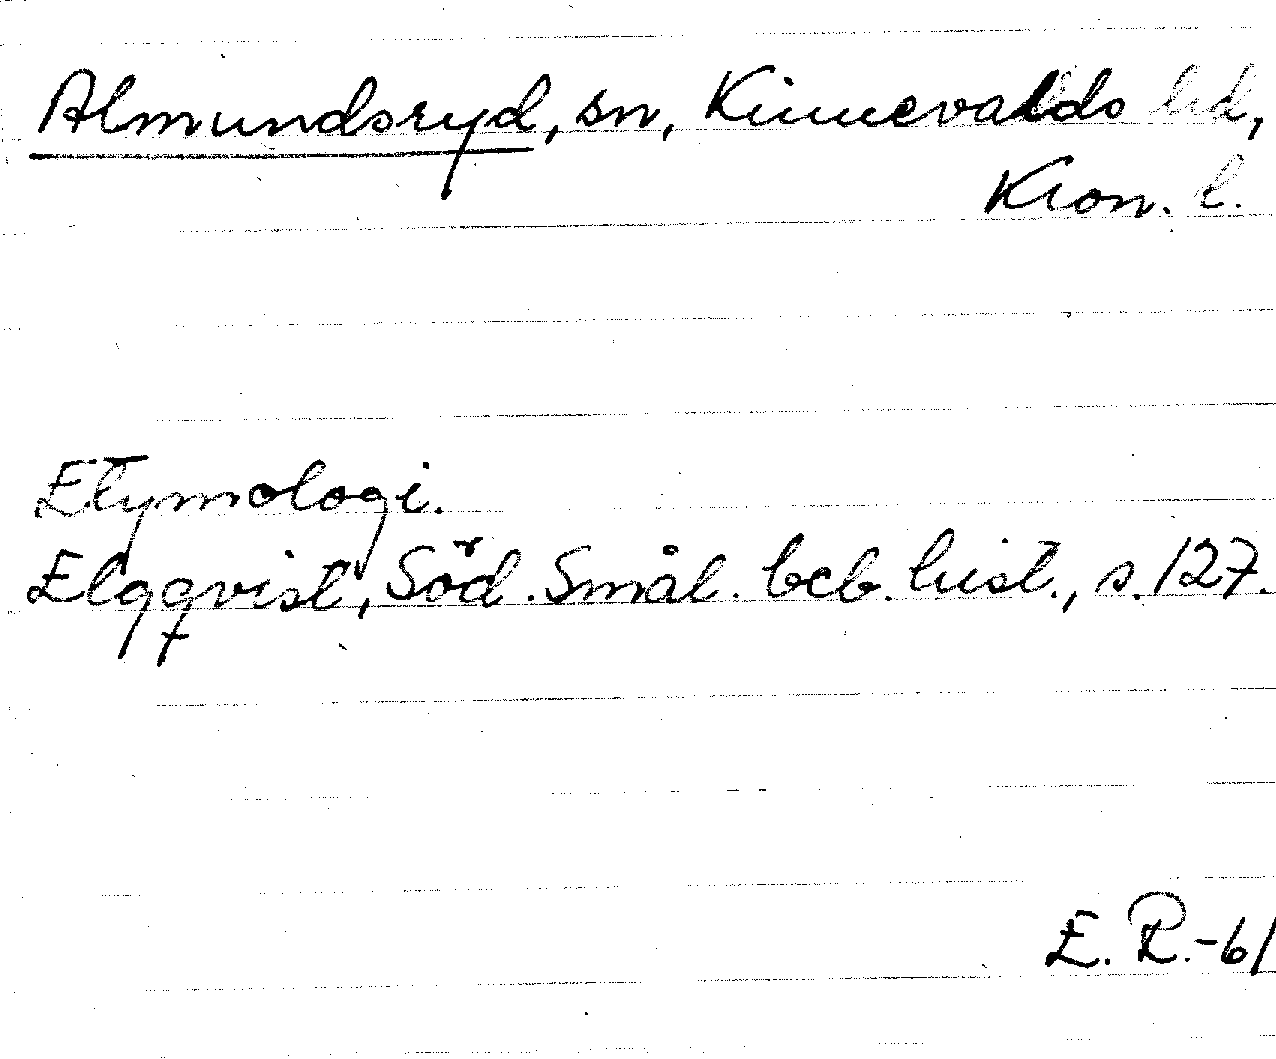 Almundsryd, sn, Kinnevalds hd,
Kron. l.
Etymologi.
Elgqvist, Söd. Smål. beb. hist., s. 127.
E. R.-61